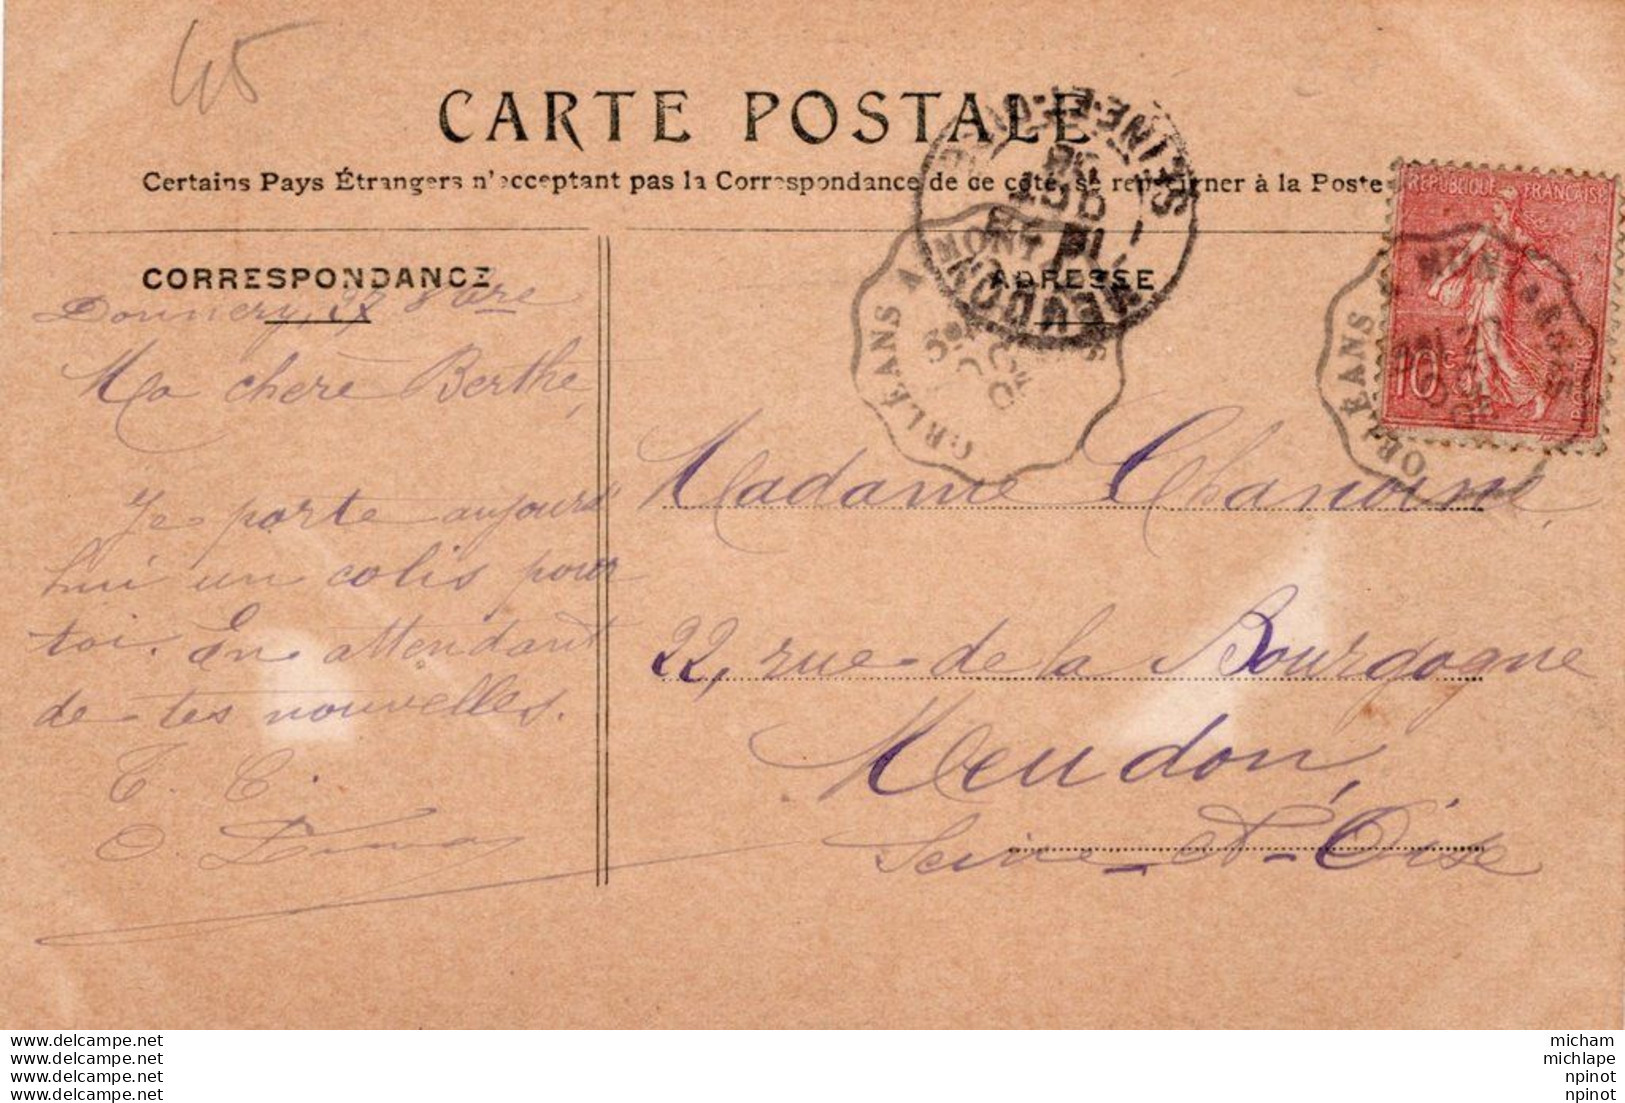 45
CARTE POSTALE
Certains Pays Étrangers n'acceptant pas la Correspondance de ce côté, se renseigner à la Poste
CORRESPONDANCE
Donnery, 27 8bre
Ma chère Berthe,
Je porte aujourd'
hui un colis pour
toi. En attendant
de tes nouvelles.
ADRESSE
Madame Chanoine,
22, rue de la Bourgogne
Meudon,
Seine-et-Oise
REPUBLIQUE FRANÇAISE
10c
ORLÉANS A MONTARGIS
ORLÉANS A MONTARGIS
MEUDON
SEINE-ET-OISE
www.delcampe.net
www.delcampe.net
www.delcampe.net
www.delcampe.net
micham
michlape
npinot
npinot